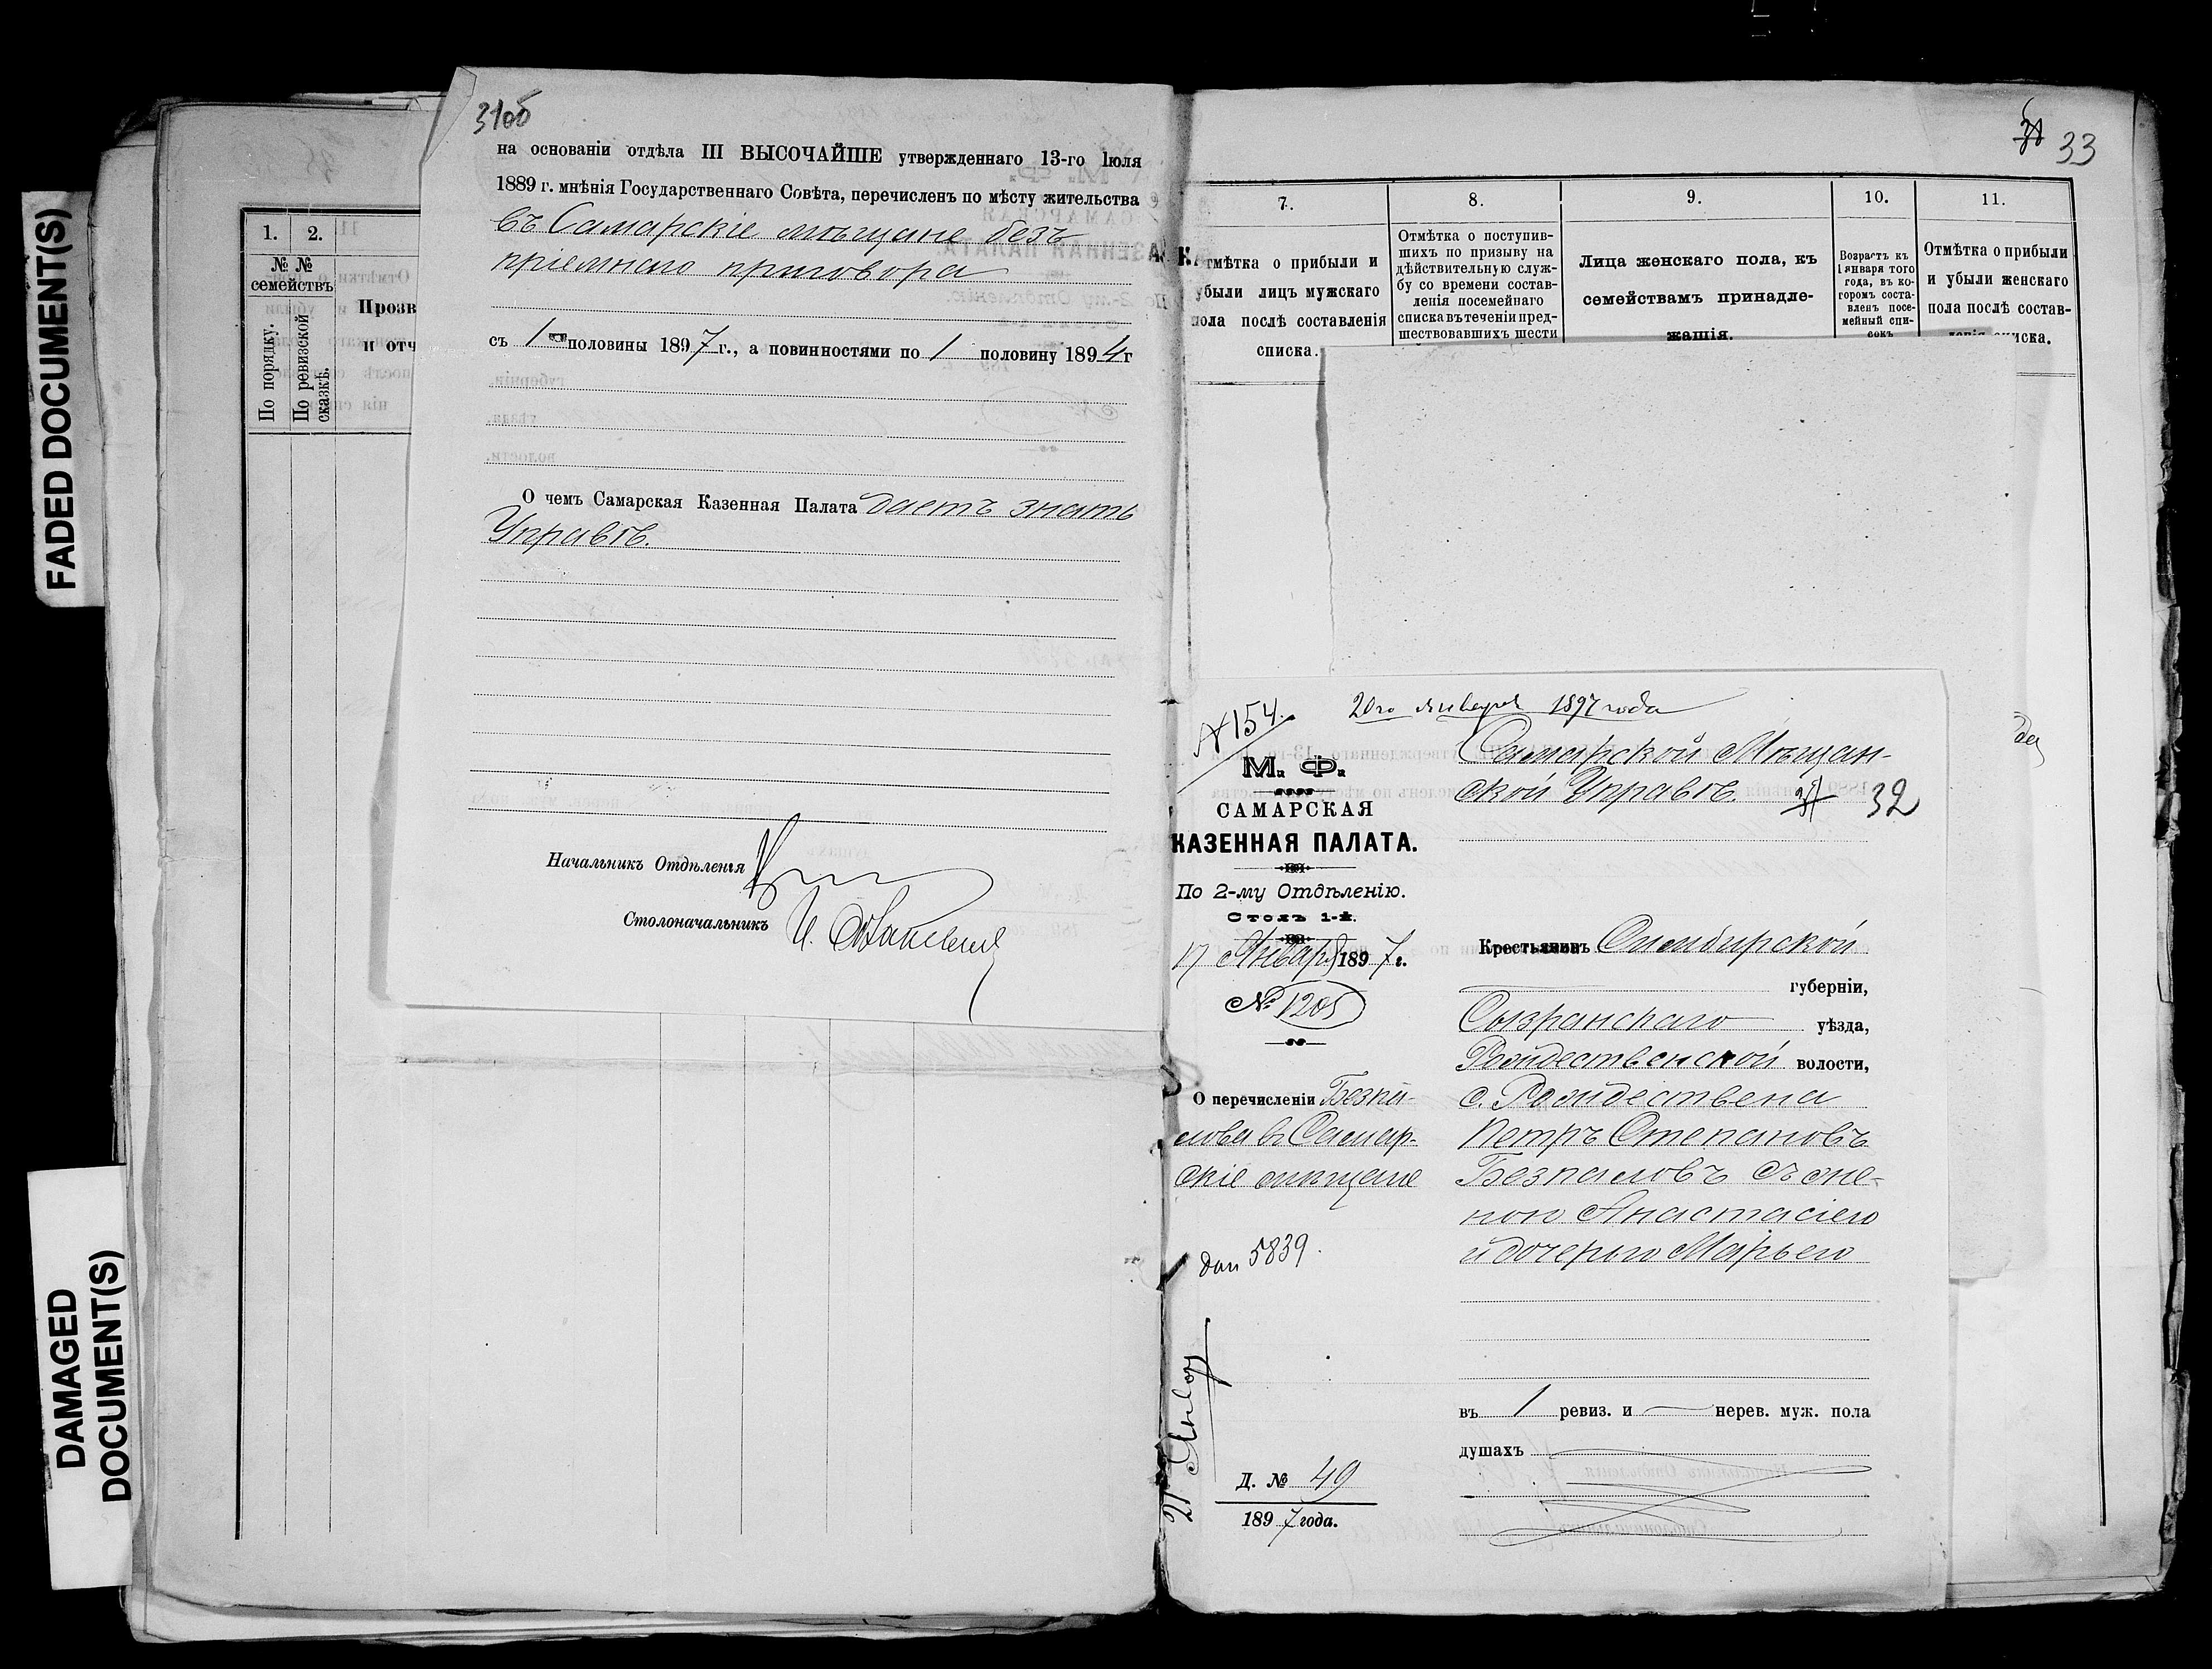 FADED DOCUMENT(S)
DAMAGED
DOCUMENT(S)
31об
на основаніи отдѣла III ВЫСОЧАЙШЕ утвержденнаго 13-го Іюля
1889 г. мнѣнія Государственнаго Совѣта, перечисленъ по мѣсту жительства
въ Самарскіе мѣщане безъ
пріемнаго приговора
съ 1 половины 1897 г., а повинностями по 1 половину 1894 г
О чемъ Самарская Казенная Палата даетъ знать
Управѣ.
Начальникъ Отдѣленія
Столоначальникъ И.
1. 2.
№ № семействъ
По порядку.
По ревизской сказкѣ.
Прозв
и отч
33
7. 8. 9. 10. 11.
тмѣтка о прибыли и
убыли лицъ мужскаго
пола послѣ составленія
списка.
Отмѣтка о поступив-
шихъ по призыву на
дѣйствительную служ-
бу со времени состав-
ленія посемейнаго
списка въ теченіи пред-
шествовавшихъ шести
Лица женскаго пола, къ
семействамъ принадле-
жащія.
Возрастъ къ
1 января того
года, въ ко-
горомъ соста-
вленъ посе-
мейный спи-
сокъ
Отмѣтка о прибыли
и убыли женскаго
пола послѣ состав-
ленія списка.
№ 154.
20го Января 1897 года
М. Ф.
САМАРСКАЯ
КАЗЕННАЯ ПАЛАТА.
По 2-му Отдѣленію.
Столъ 1-й.
17 Января 1897 г.
№ 1205
О перечисленіи Безпа-
лова въ Самар-
скіе мѣщане
5839.
21 Январ
Д. № 49
1897 года.
Самарской Мѣщан-
ской Управѣ.
32
Крестьянинъ Симбирской
губерніи,
Сызранскаго уѣзда,
Рождественской волости,
с. Рождествена
Петръ Степановъ
Безпаловъ съ же-
ною Анастасіею
и дочерью Марьею
въ 1 ревиз. и — нерев. муж. пола
душахъ